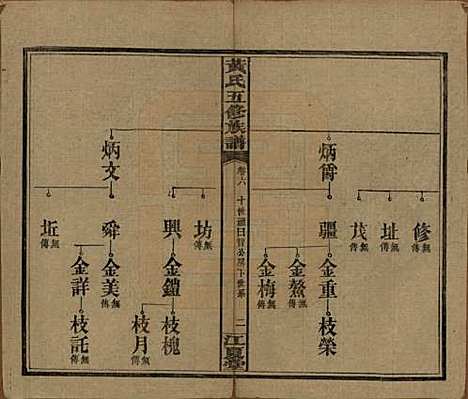 炳爵
修 無傳
址 無傳
茂 無傳
疆
金重
枝榮
金鰲 無傳
金梅 無傳
黃氏五修族譜
卷六
十世
二
江夏堂
坊 無傳
興
金鎧
枝槐
枝月 無傳
炳文
舜
金美 無傳
金詳
枝託 無傳
坵 無傳